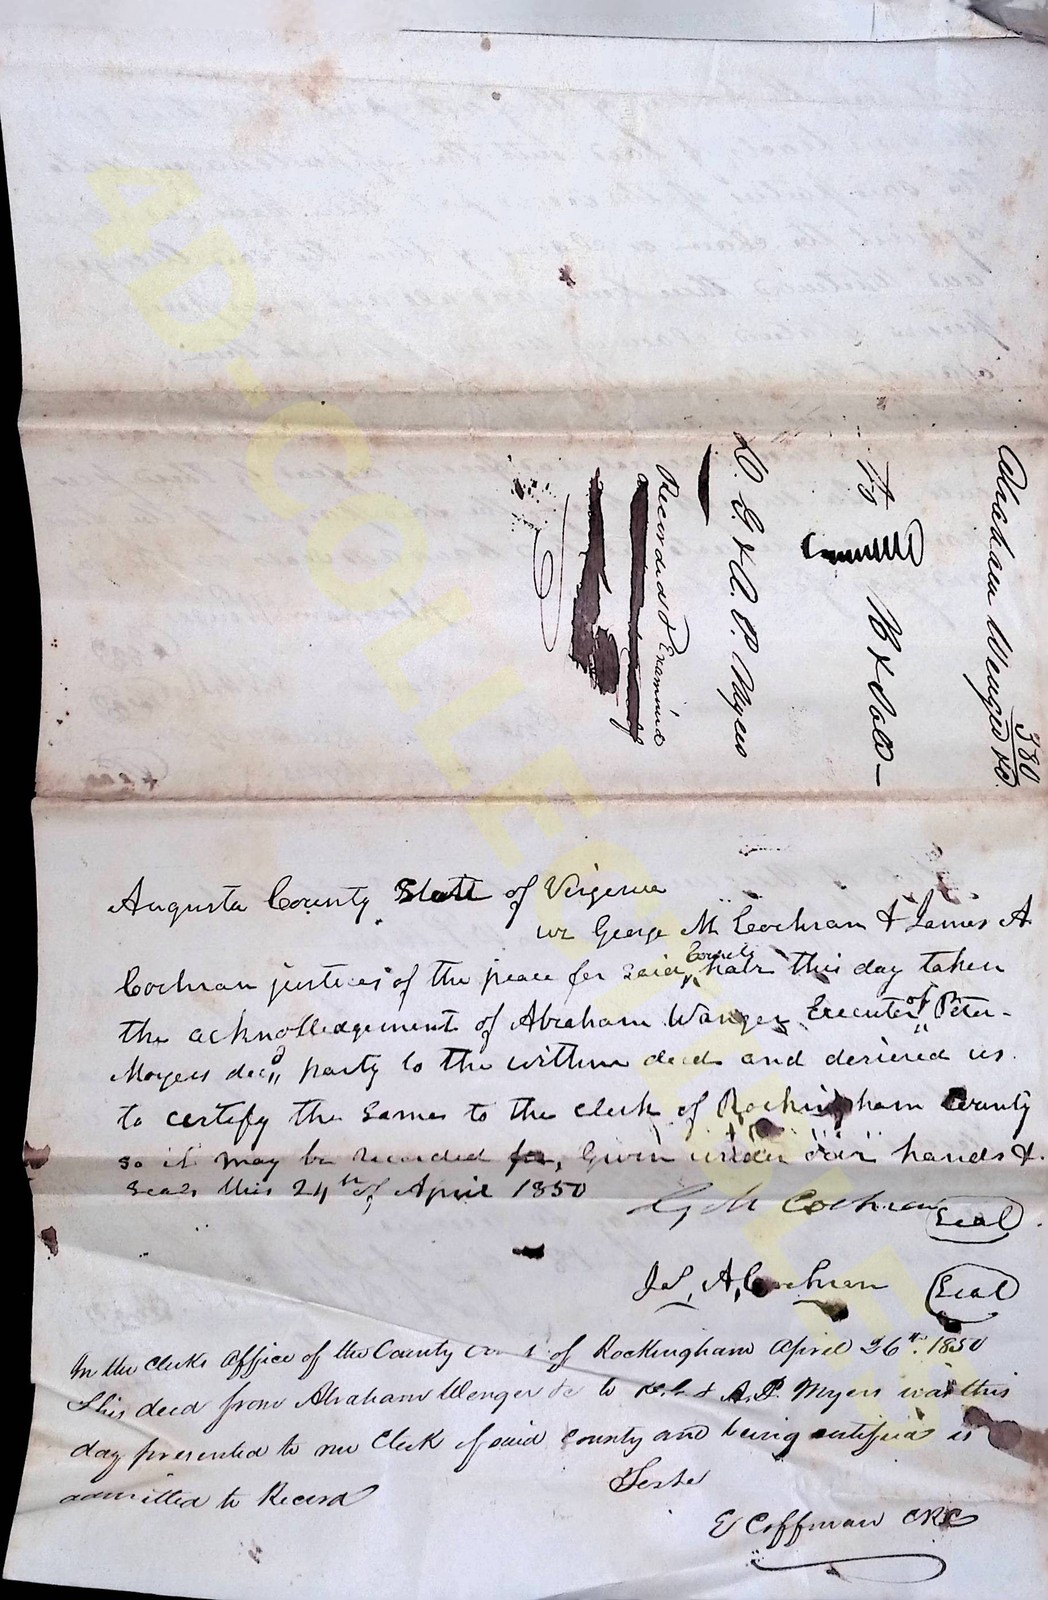 380
Abraham Wenger &c
To B & Sale
D. G. & A. P. Myers
Recorded & Examined
Augusta County State of Virginia
we George M Cochran & James A
Cochran justices of the peace for said County have this day taken
the acknolledgement of Abraham Wanger Executer of Peter
Moyers decd party to the within deed and desiered us
to certify the Same to the clerk of Rockingham County
so it may be recorded for, Given under our hands &
Seals this 24th of April 1850
G M Cochran Seal
Js, A, Cochran Seal
In the Clerks Office of the County of Rockingham April 26th 1850
This deed from Abraham Wenger &c to D. G. & A. P. Myers was this
day presented to me Clerk of said County and being certified is
admitted to Record
Teste
E Coffman CRC
4D-COLLECTIBLES